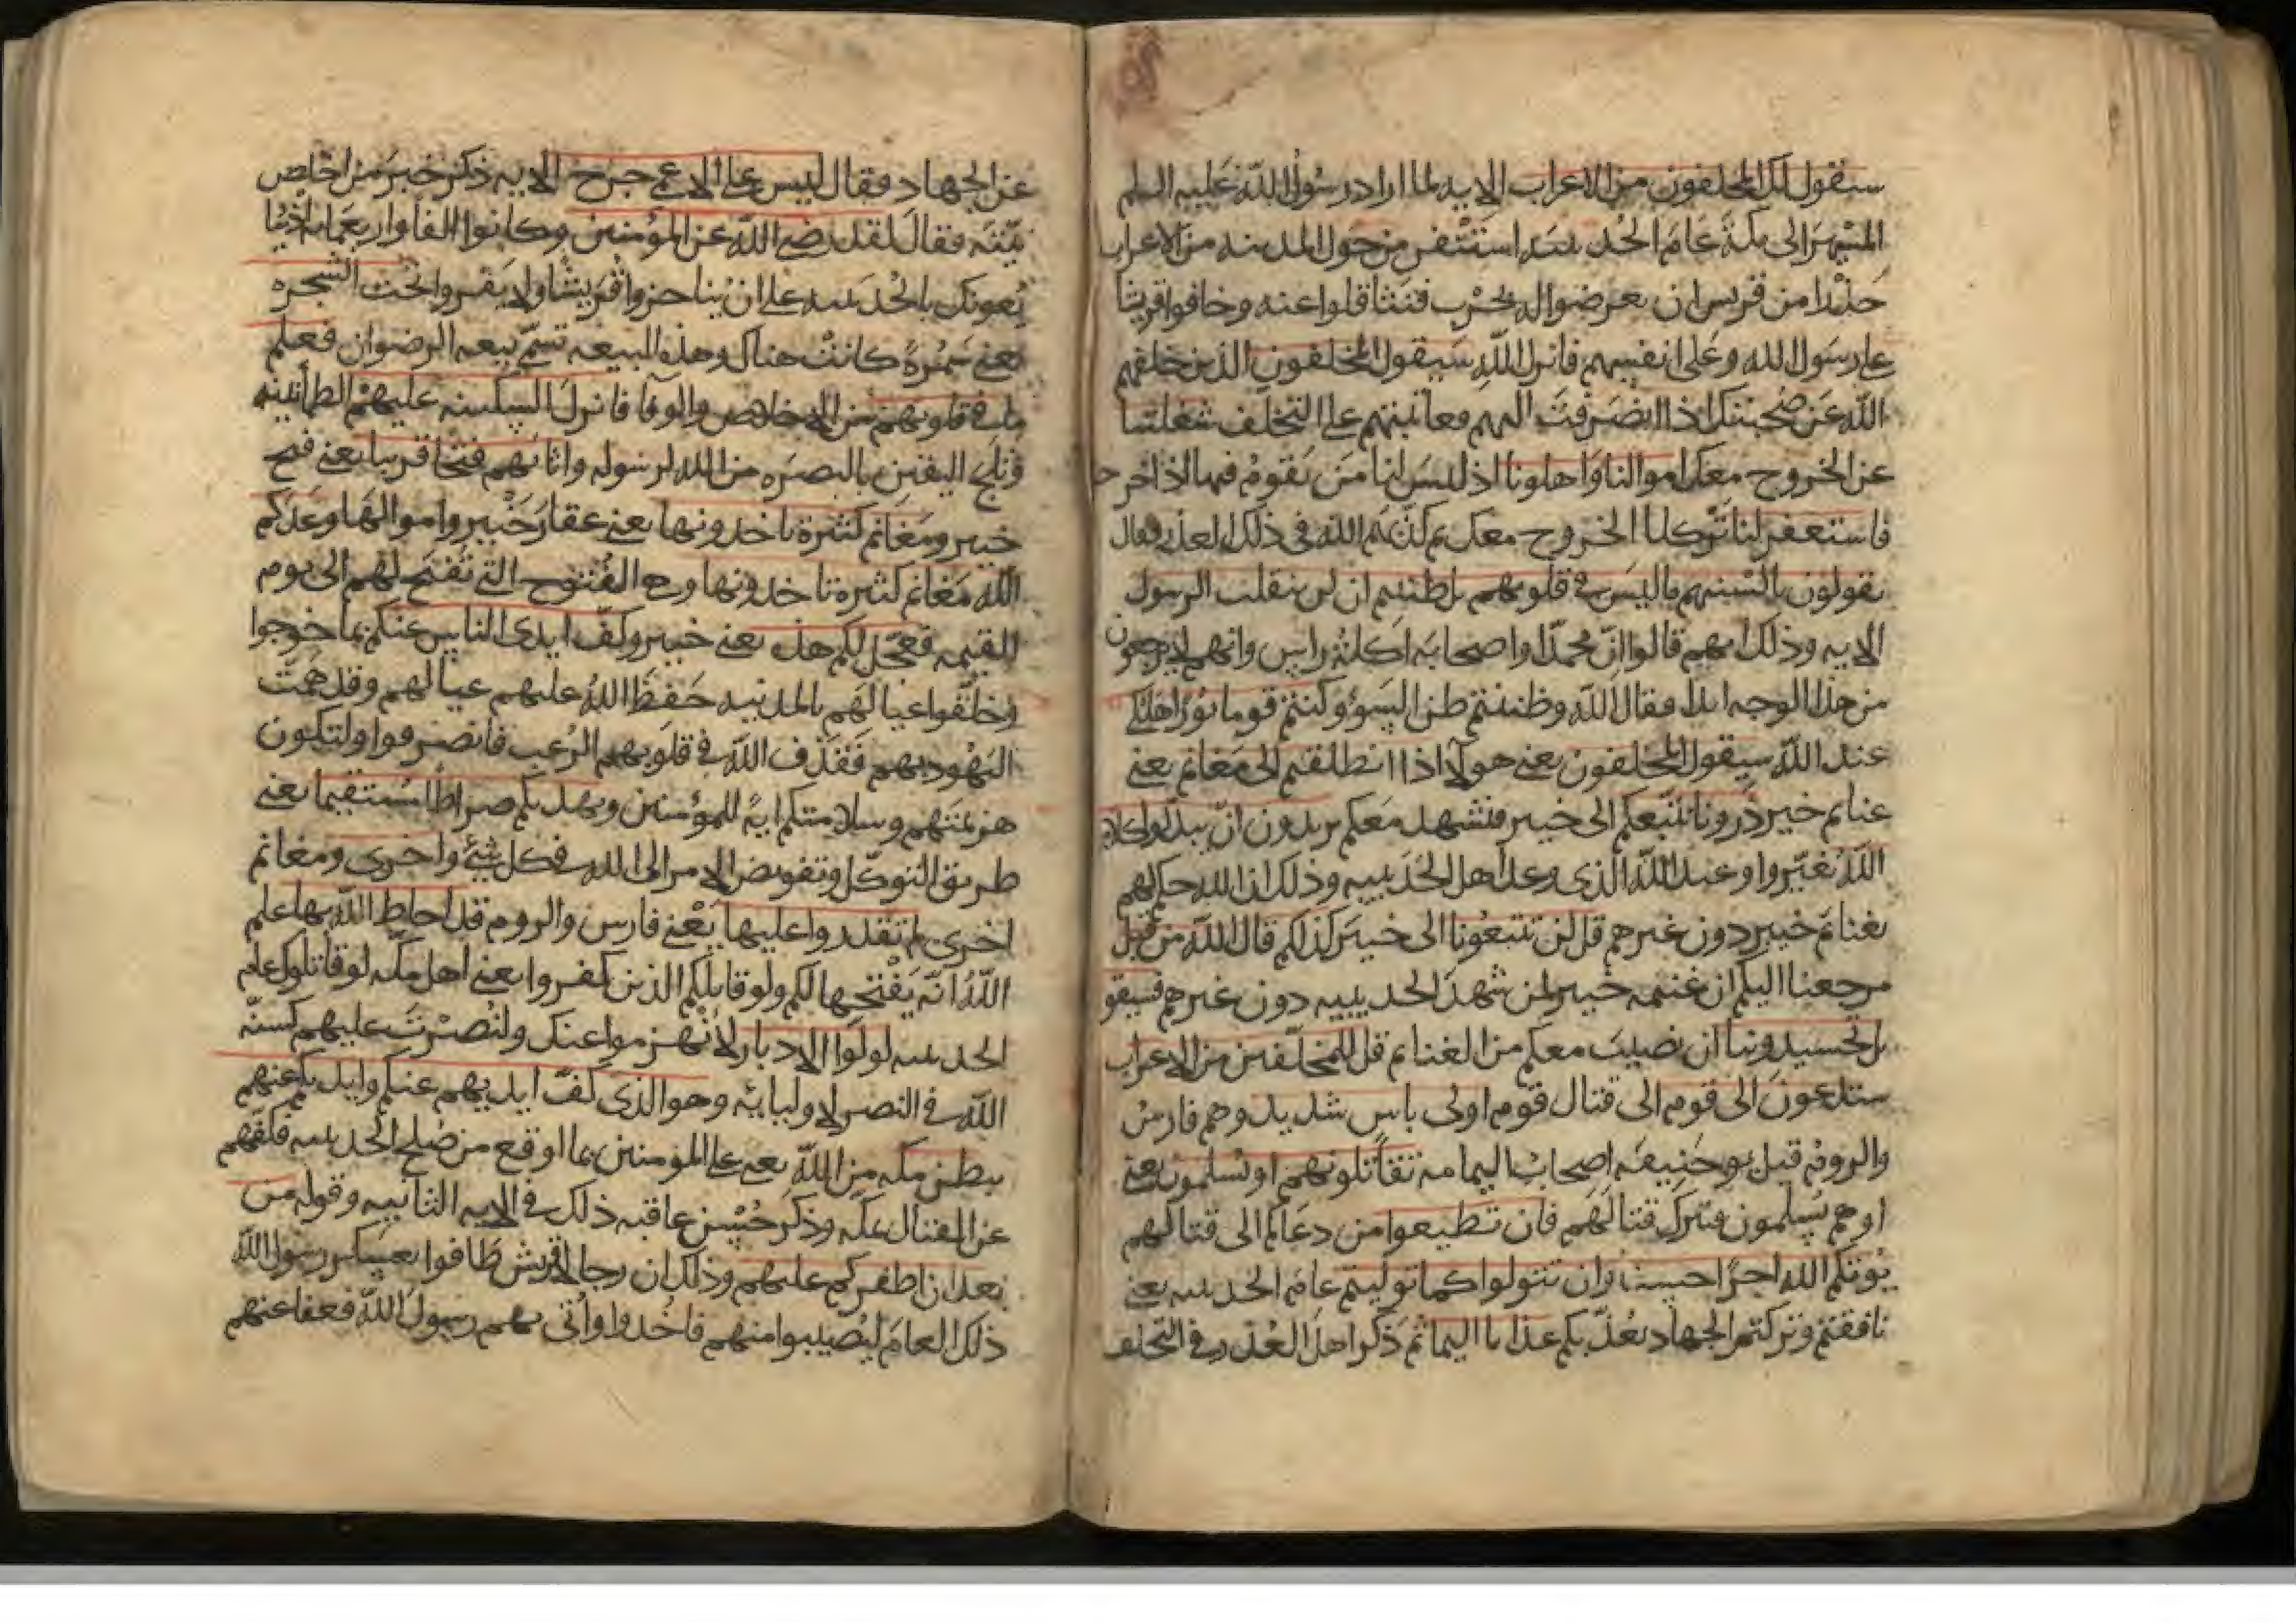 سيقول لك المخلفون من الاعراب الايه لما اراد رسول الله عليه السلم
المسير الى مكة عام الحديبيه استنفر من حول المدينه من الاعراب
حذرا من قريس ان يعرضوا له بحرب فتثاقلوا عنه وخافوا قريشا
على رسول الله وعلى انفسهم فانزل الله سيقول المخلفون الذين خلفهم
الله عن صحبتك اذا انصرفت اليهم فعاتبتهم على التخلف شغلتنا
عن الخروج معك اموالنا واهلونا اذ ليس لنا من يقوم فيها اذا خرجنا
فاستغفر لنا تركنا الخروج معك ثم كذبهم الله في ذلك العذر فقال
يقولون بالسنتهم ما ليس في قلوبهم بل ظننتم ان لن ينقلب الرسول
الايه وذلك انهم قالوا ان محمدا واصحابه اكلة راس وانهم لا يرجعون
من هذا الوجه ابدا فقال الله وظننتم ظن السوء وكنتم قوما بورا هلكى
عند الله سيقول المخلفون يعني هولا اذا انطلقتم الى مغانم يعني
غنائم خيبر ذرونا نتبعكم الى خيبر فنشهد معكم يريدون ان يبدلوا كلام
الله يغيروا وعد الله الذى وعد اهل الحديبيه وذلك ان الله حكم لهم
بغنائم خيبر دون غيرهم قل لن تتبعونا الى خيبر كذلكم قال الله من قبل
مرجعنا اليكم ان غنيمه خيبر لمن شهد الحديبيه دون غيرهم فسيقو
بل تحسدوننا ان نصيب معكم من الغنائم قل للمخلفين من الاعراب
ستدعون الى قوم الى قتال قوم اولى باس شديد وهم فارس
والروم قيل بنو حنيفه اصحاب اليمامه تقاتلونهم او يسلمون يعني
او هم يسلمون فيترك قتالهم فان تطيعوا من دعاكم الى قتالهم
يوتكم الله اجرا حسنا وان تتولوا كما توليتم عام الحديبيه يعني
نافقتم وتركتم الجهاد يعذبكم عذابا اليما ثم ذكر اهل العذر في التخلف
عن الجهاد فقال ليس على الاعمى حرج الايه ذكر خبر من اخلص
نيته فقال لقد رضي الله عن المؤمنين وكانوا الفا واربعمايه اذ يبا
يعونك بالحديبيه على ان يناجزوا قريشا ولا يفروا تحت الشجره
يعني سمرة كانت هناك وهذه البيعه تسمى بيعه الرضوان فعلم
ما في قلوبهم من الاخلاص والوفا فانزل السكينه عليهم الطمأنينه
وثلج اليقين بالبصره من الله لرسوله واثابهم فتحا قريبا يعني فتح
خيبر ومغانم كثيرة ياخذونها يعني عقار خيبر واموالها وعدكم
الله مغانم كثيرة تاخذونها وهي الفتوح التي تفتح لهم الى يوم
القيمه فعجل لكم هذه يعني خيبر وكف ايدى الناس عنكم لما خرجوا
وخلفوا عيالهم بالمدينه حفظ الله عليهم عيالهم وقد همت
اليهود بهم فقذف الله في قلوبهم الرعب فانصرفوا ولتكون
هزيمتهم وسلامتكم اية للمؤمنين ويهديكم صراطا مستقيما يعني
طريق التوكل وتفويض الامر الى الله في كل شيء واخرى ومغانم
اخرى لم تقدروا عليها يعني فارس والروم قد احاط الله بها علم
الله انه يفتحها لكم ولو قاتلكم الذين كفروا يعني اهل مكه لو قاتلوك عام
الحديبيه لولوا الادبار لانهزموا عنك ولنصرت عليهم كسنه
الله في النصر لاوليائه وهو الذى كف ايديهم عنكم وايديكم عنهم
ببطن مكه من الله يعني على المؤمنين بما اوقع من صلح الحديبيه فكفهم
عن القتال بمكه وذكر حسن عاقبه ذلك في الايه الثانيه وقوله من
بعد ان اظفركم عليهم وذلك ان رجالا قريش طافوا بعسكر رسول الله
ذلك العام ليصيبوا منهم فاخذوا واتى بهم رسول الله فعفا عنهم